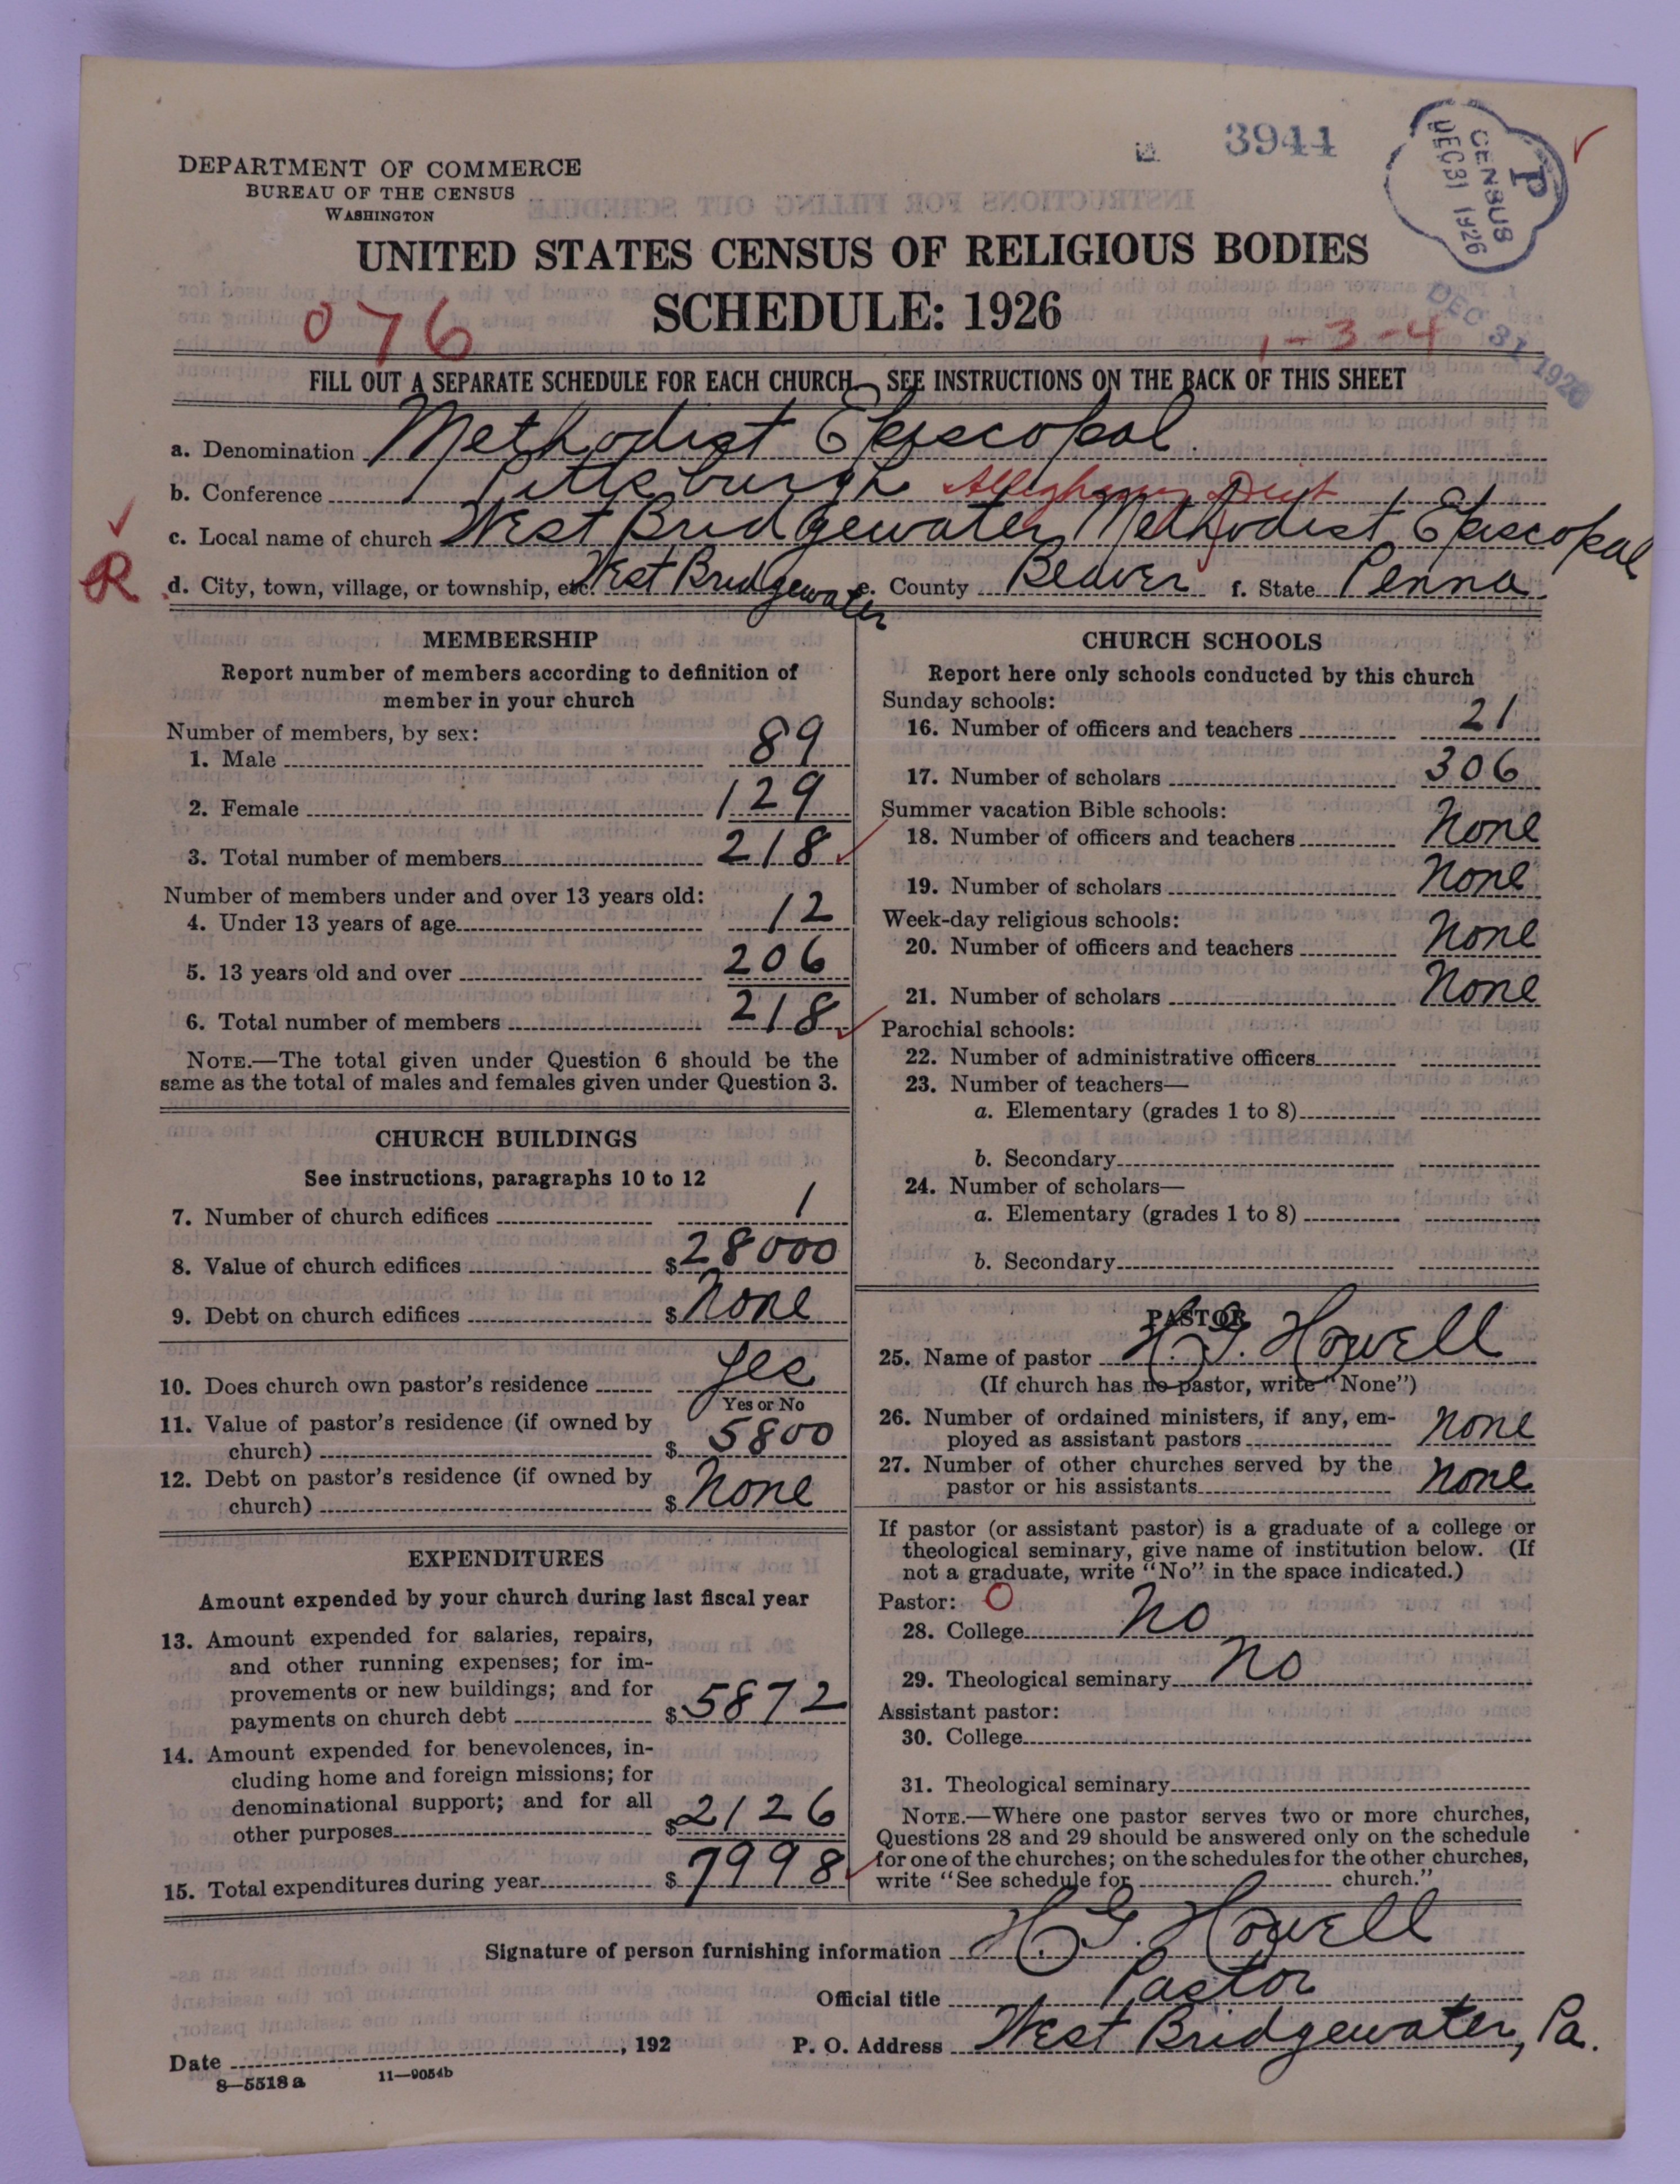 3944
P
CENSUS
DEC 31 1926
DEC 31 1926
DEPARTMENT OF COMMERCE
BUREAU OF THE CENSUS
WASHINGTON
UNITED STATES CENSUS OF RELIGIOUS BODIES
SCHEDULE: 1926
076
1-3-4
FILL OUT A SEPARATE SCHEDULE FOR EACH CHURCH—SEE INSTRUCTIONS ON THE BACK OF THIS SHEET
a. Denomination Methodist Episcopal.
b. Conference Pittsburgh Allegheny Dist
c. Local name of church West Bridgewater Methodist Episcopal
R
d. City, town, village, or township, etc. West Bridgewater e. County Beaver f. State Penna.
MEMBERSHIP
Report number of members according to definition of
member in your church
Number of members, by sex:
1. Male 89
2. Female 129
3. Total number of members 218
Number of members under and over 13 years old:
4. Under 13 years of age 12
5. 13 years old and over 206
6. Total number of members 218
NOTE.—The total given under Question 6 should be the
same as the total of males and females given under Question 3.
CHURCH BUILDINGS
See instructions, paragraphs 10 to 12
7. Number of church edifices 1
8. Value of church edifices $ 28000
9. Debt on church edifices $ None
10. Does church own pastor's residence Yes
Yes or No
11. Value of pastor's residence (if owned by
church) $ 5800
12. Debt on pastor's residence (if owned by
church) $ None
EXPENDITURES
Amount expended by your church during last fiscal year
13. Amount expended for salaries, repairs,
and other running expenses; for im-
provements or new buildings; and for
payments on church debt $ 5872
14. Amount expended for benevolences, in-
cluding home and foreign missions; for
denominational support; and for all
other purposes $ 2126
15. Total expenditures during year $ 7998
CHURCH SCHOOLS
Report here only schools conducted by this church
Sunday schools:
16. Number of officers and teachers 21
17. Number of scholars 306
Summer vacation Bible schools:
18. Number of officers and teachers None
19. Number of scholars None
Week-day religious schools:
20. Number of officers and teachers None
21. Number of scholars None
Parochial schools:
22. Number of administrative officers
23. Number of teachers—
a. Elementary (grades 1 to 8)
b. Secondary
24. Number of scholars—
a. Elementary (grades 1 to 8)
b. Secondary
PASTOR
25. Name of pastor H. G. Howell
(If church has no pastor, write "None")
26. Number of ordained ministers, if any, em-
ployed as assistant pastors None
27. Number of other churches served by the
pastor or his assistants None
If pastor (or assistant pastor) is a graduate of a college or
theological seminary, give name of institution below. (If
not a graduate, write "No" in the space indicated.)
Pastor: O
28. College No
29. Theological seminary No
Assistant pastor:
30. College
31. Theological seminary
NOTE.—Where one pastor serves two or more churches,
Questions 28 and 29 should be answered only on the schedule
for one of the churches; on the schedules for the other churches,
write "See schedule for church."
Signature of person furnishing information H. G. Howell
Official title Pastor
Date , 192 P. O. Address West Bridgewater, Pa.
8—5518 a 11—9054b